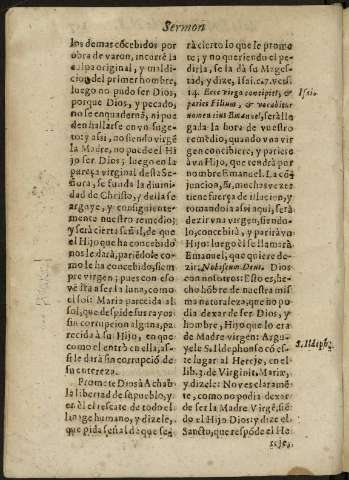 Sermon
los demas cõcebidos por
obra de varon, incurre la
culpa original, y maldi-
cion del primer hombre,
luego no pudo ser Dios,
porque Dios, y pecado,
no se enquadernã, ni pue
den hallarse en vn suge-
to: y assi, no siendo virgẽ
la Madre, no puede el Hi
jo ser Dios; luego en la
pureça virginal desta Se-
ñora, se funda la diuini-
dad de Christo, y della se
arguye, y consiguiente-
mente nuestro remedio;
y serà cierta señal, de que
el Hijo que ha concebido
nos le darà, pariẽdole co-
mo le ha concebido, siem
pre virgen; pues con esso
vẽdra a ser la luna, como
el sol: Maria parecida al
sol, que despide sus rayos
sin corrupcion alguna, pa
recida à su Hijo, en que
como el entrò en ella, as-
si le darà sin corrupciõ de
su entereza.
Promete Dios à Achab
la libertad de su pueblo, y
en èl el rescate de todo el
linage humano, y dizele,
que pida señal de que se-
rà cierto lo que le prome
te; y no queriendo el pe-
dirla, se la dà su Mages-
tad, y dize, Isai. c. 7. vers.
14. Ecce virgo concipiet, &
pariet Filium, & vocabitur
nomen eius Emanuel, serà lle
gada la hora de vuestro
remedio, quando vna vir
gen concibiere, y pariere
vn Hijo, que tendrà por
nombre Emanuel. La cõ
juncion, Et, muchas vezes
tiene fuerça de illacion, y
tomandola assi aqui, serà
dezir vna virgen, siendo-
lo, concebirà, y parirà vn
Hijo: luego èl se llamarà
Emanuel, que quiere de-
zir: Nobiscum Deus, Dios
con nosotros: Esto es, he-
cho hõbre de nuestra mis
ma naturaleza, que no po
dia dexar de ser Dios, y
hombre, Hijo que lo era
de Madre virgen: Argu-
yele S. Ildephonso cõ es-
te lugar al Hereje, en el
lib. 3. de Virginit. Mariæ,
y dizele: No ves claramẽ-
te, como no podia dexar
de ser la Madre Virgẽ, siẽ
do el Hijo Dios: y dize el
Sancto, que respõde el He
Isai.
S. Ildephõ.